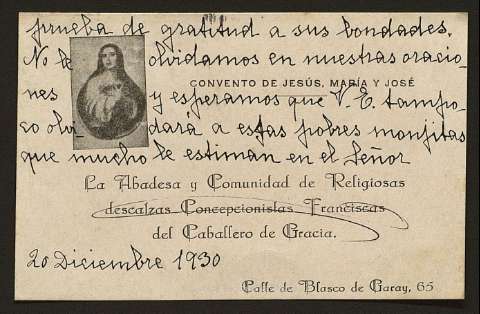 prueba de gratitud a sus bondades.
No le olvidamos en nuestras oracio-
CONVENTO DE JESÚS, MARÍA Y JOSÉ
nes y esperamos que V. E. tampo-
co olvidará a estas pobres monjitas
que mucho le estiman en el Señor
La Abadesa y Comunidad de Religiosas
descalzas Concepcionistas Franciscas
del Caballero de Gracia.
20 Diciembre 1930
Calle de Blasco de Garay, 65